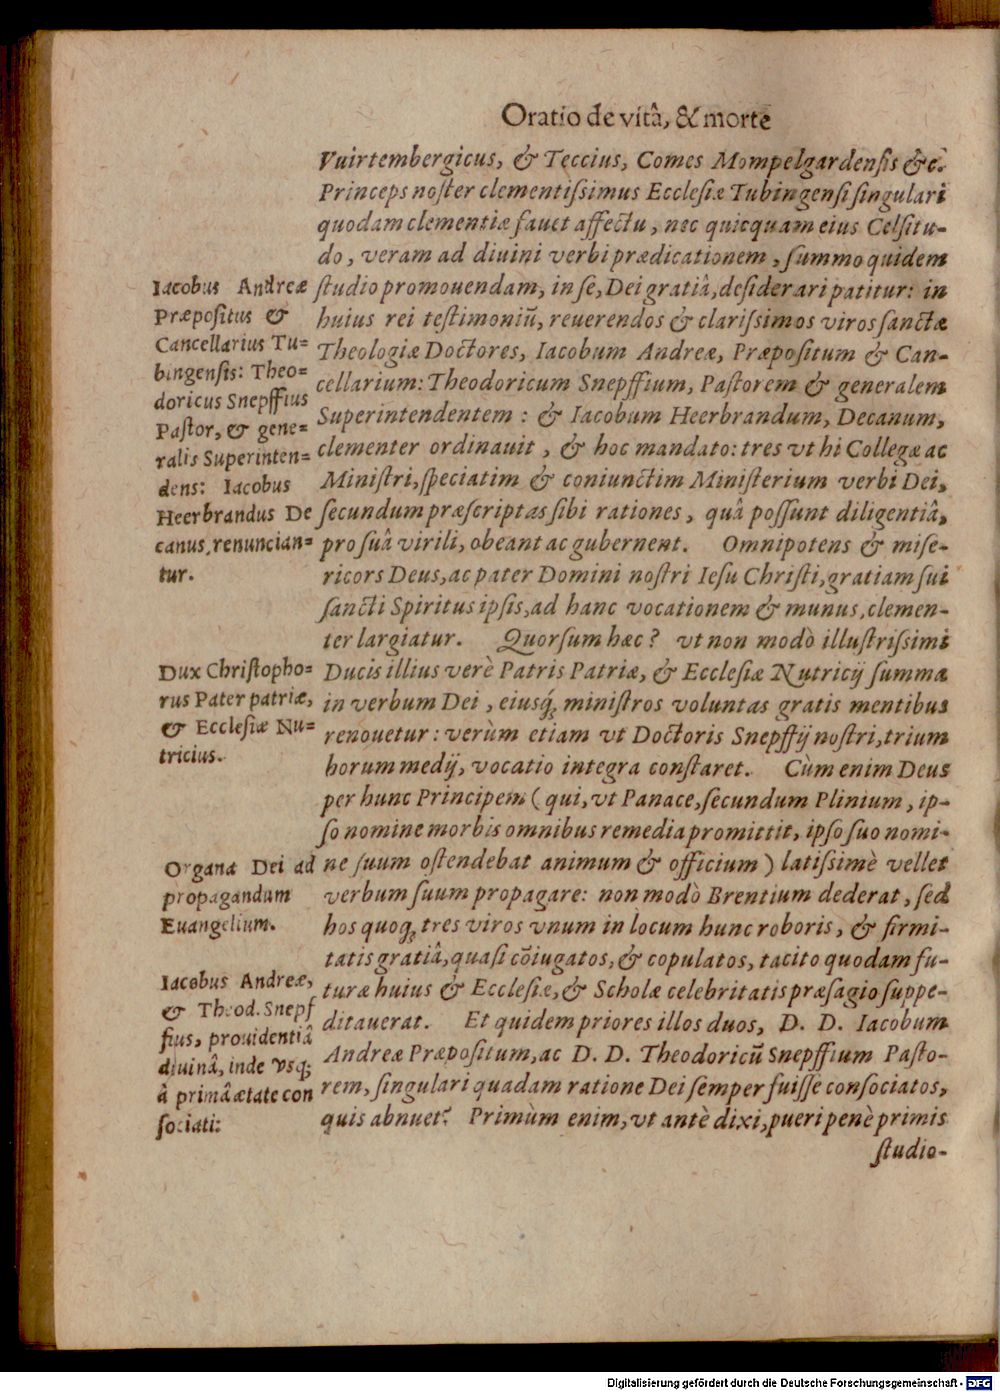 Oratio de vitâ, & morte
Vuirtembergicus, & Teccius, Comes Mompelgardensis &c.
Princeps noster clementissimus Ecclesiæ Tubingensi singulari
quodam clementiæ fauet affectu, nec quicquam eius Celsitu-
do, veram ad diuini verbi prædicationem, summo quidem
studio promouendam, in se, Dei gratiâ, desiderari patitur: in
huius rei testimoniũ, reuerendos & clarissimos viros sanctæ
Theologiæ Doctores, Iacobum Andreæ, Præpositum & Can-
cellarium: Theodoricum Snepffium, Pastorem & generalem
Superintendentem: & Iacobum Heerbrandum, Decanum,
clementer ordinauit, & hoc mandato: tres vt hi Collegæ ac
Ministri, speciatim & coniunctim Ministerium verbi Dei,
secundum præscriptas sibi rationes, quâ possunt diligentiâ,
pro suâ virili, obeant ac gubernent. Omnipotens & mise-
ricors Deus, ac pater Domini nostri Iesu Christi, gratiam sui
sancti Spiritus ipsis, ad hanc vocationem & munus, clemen-
ter largiatur. Quorsum hæc? vt non modò illustrissimi
Ducis illius verè Patris Patriæ, & Ecclesiæ Nutricij summa
in verbum Dei, eiusq́; ministros voluntas gratis mentibus
renouetur: verùm etiam vt Doctoris Snepffij nostri, trium
horum medij, vocatio integra constaret. Cùm enim Deus
per hunc Principem (qui, vt Panace, secundum Plinium, ip-
so nomine morbis omnibus remedia promittit, ipso suo nomi-
ne suum ostendebat animum & officium) latissimè vellet
verbum suum propagare: non modò Brentium dederat, sed
hos quoq; tres viros vnum in locum hunc roboris, & firmi-
tatis gratiâ, quasi cõiugatos, & copulatos, tacito quodam fu-
turæ huius & Ecclesiæ, & Scholæ celebritatis præsagio suppe-
ditauerat. Et quidem priores illos duos, D. D. Iacobum
Andreæ Præpositum, ac D. D. Theodoricũ Snepffium Pasto-
rem, singulari quadam ratione Dei semper fuisse consociatos,
quis abnuet? Primùm enim, vt antè dixi, pueri penè primis
studio-
Iacobus Andreæ
Præpositus &
Cancellarius Tu-
bingensis: Theo-
doricus Snepffius
Pastor, & gene-
ralis Superinten-
dens: Iacobus
Heerbrandus De
canus, renuncian-
tur.
Dux Christopho-
rus Pater patriæ,
& Ecclesiæ Nu-
tricius.
Organa Dei ad
propagandum
Euangelium.
Iacobus Andreæ,
& Theod. Snepf
fius, prouidentiâ
diuinâ, inde vsq;
à primâ ætate con
sociati:
Digitalisierung gefördert durch die Deutsche Forschungsgemeinschaft - DFG